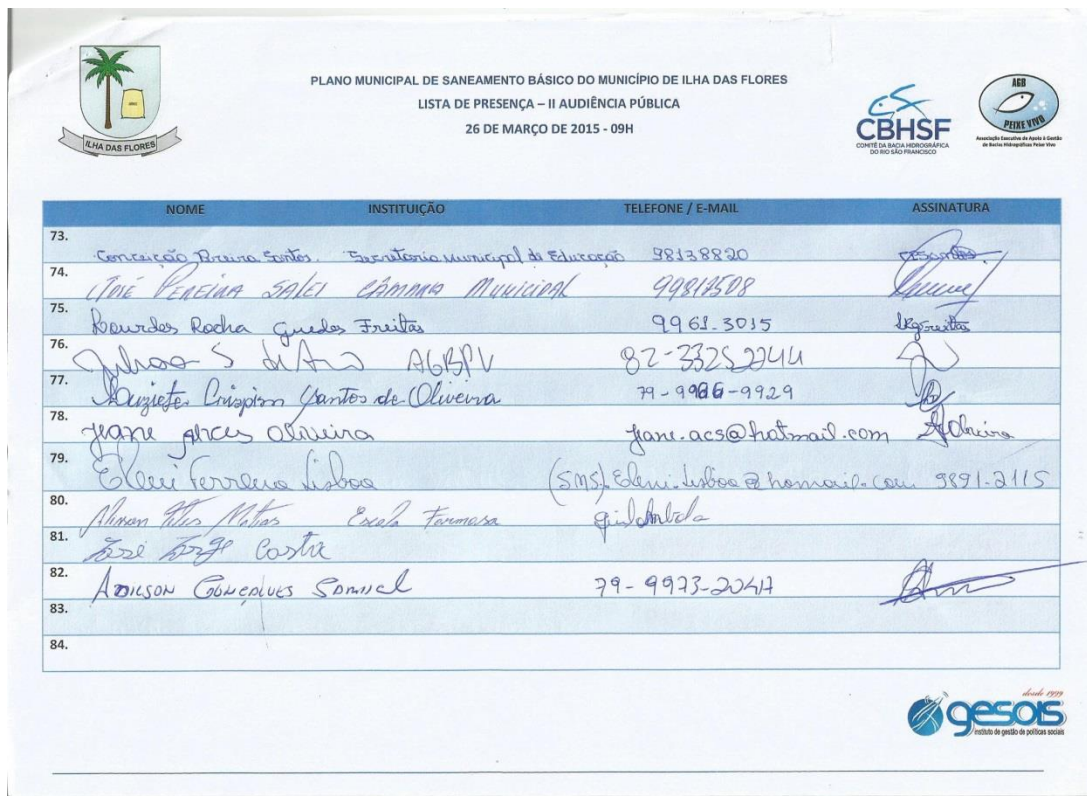 PLANO MUNICIPAL DE SANEAMENTO BÁSICO DO MUNICÍPIO DE ILHA DAS FLORES
LISTA DE PRESENÇA – II AUDIÊNCIA PÚBLICA
26 DE MARÇO DE 2015 - 09H
ILHA DAS FLORES
CBHSF
COMITÊ DA BACIA HIDROGRÁFICA
DO RIO SÃO FRANCISCO
AGB
PEIXE VIVO
Associação Executiva de Apoio à Gestão
de Bacias Hidrográficas Peixe Vivo
NOME INSTITUIÇÃO TELEFONE / E-MAIL ASSINATURA
73. Conceição Santos. Secretaria Municipal de Educação 98138820
74. José Pereira CÂMARA MUNICIPAL 99817508
75. Lourdes Rocha Guedes Freitas 9961-3015 LRGFreitas
76. AGBPV 82-3325 2244
77. Luziete Crispim Santos de Oliveira 79-9966-9929
78. Jeane Oliveira jeane.acs@hotmail.com
79. Eleni Ferreira Lisboa (SMS) Eleni.lisboa@homail.com 9891-2115
80. Matias Escola Formosa
81. José Jorge
82. ADILSON GONÇALVES 79-9973-2047
83.
84.
desde 1999
gesois
instituto de gestão de políticas sociais